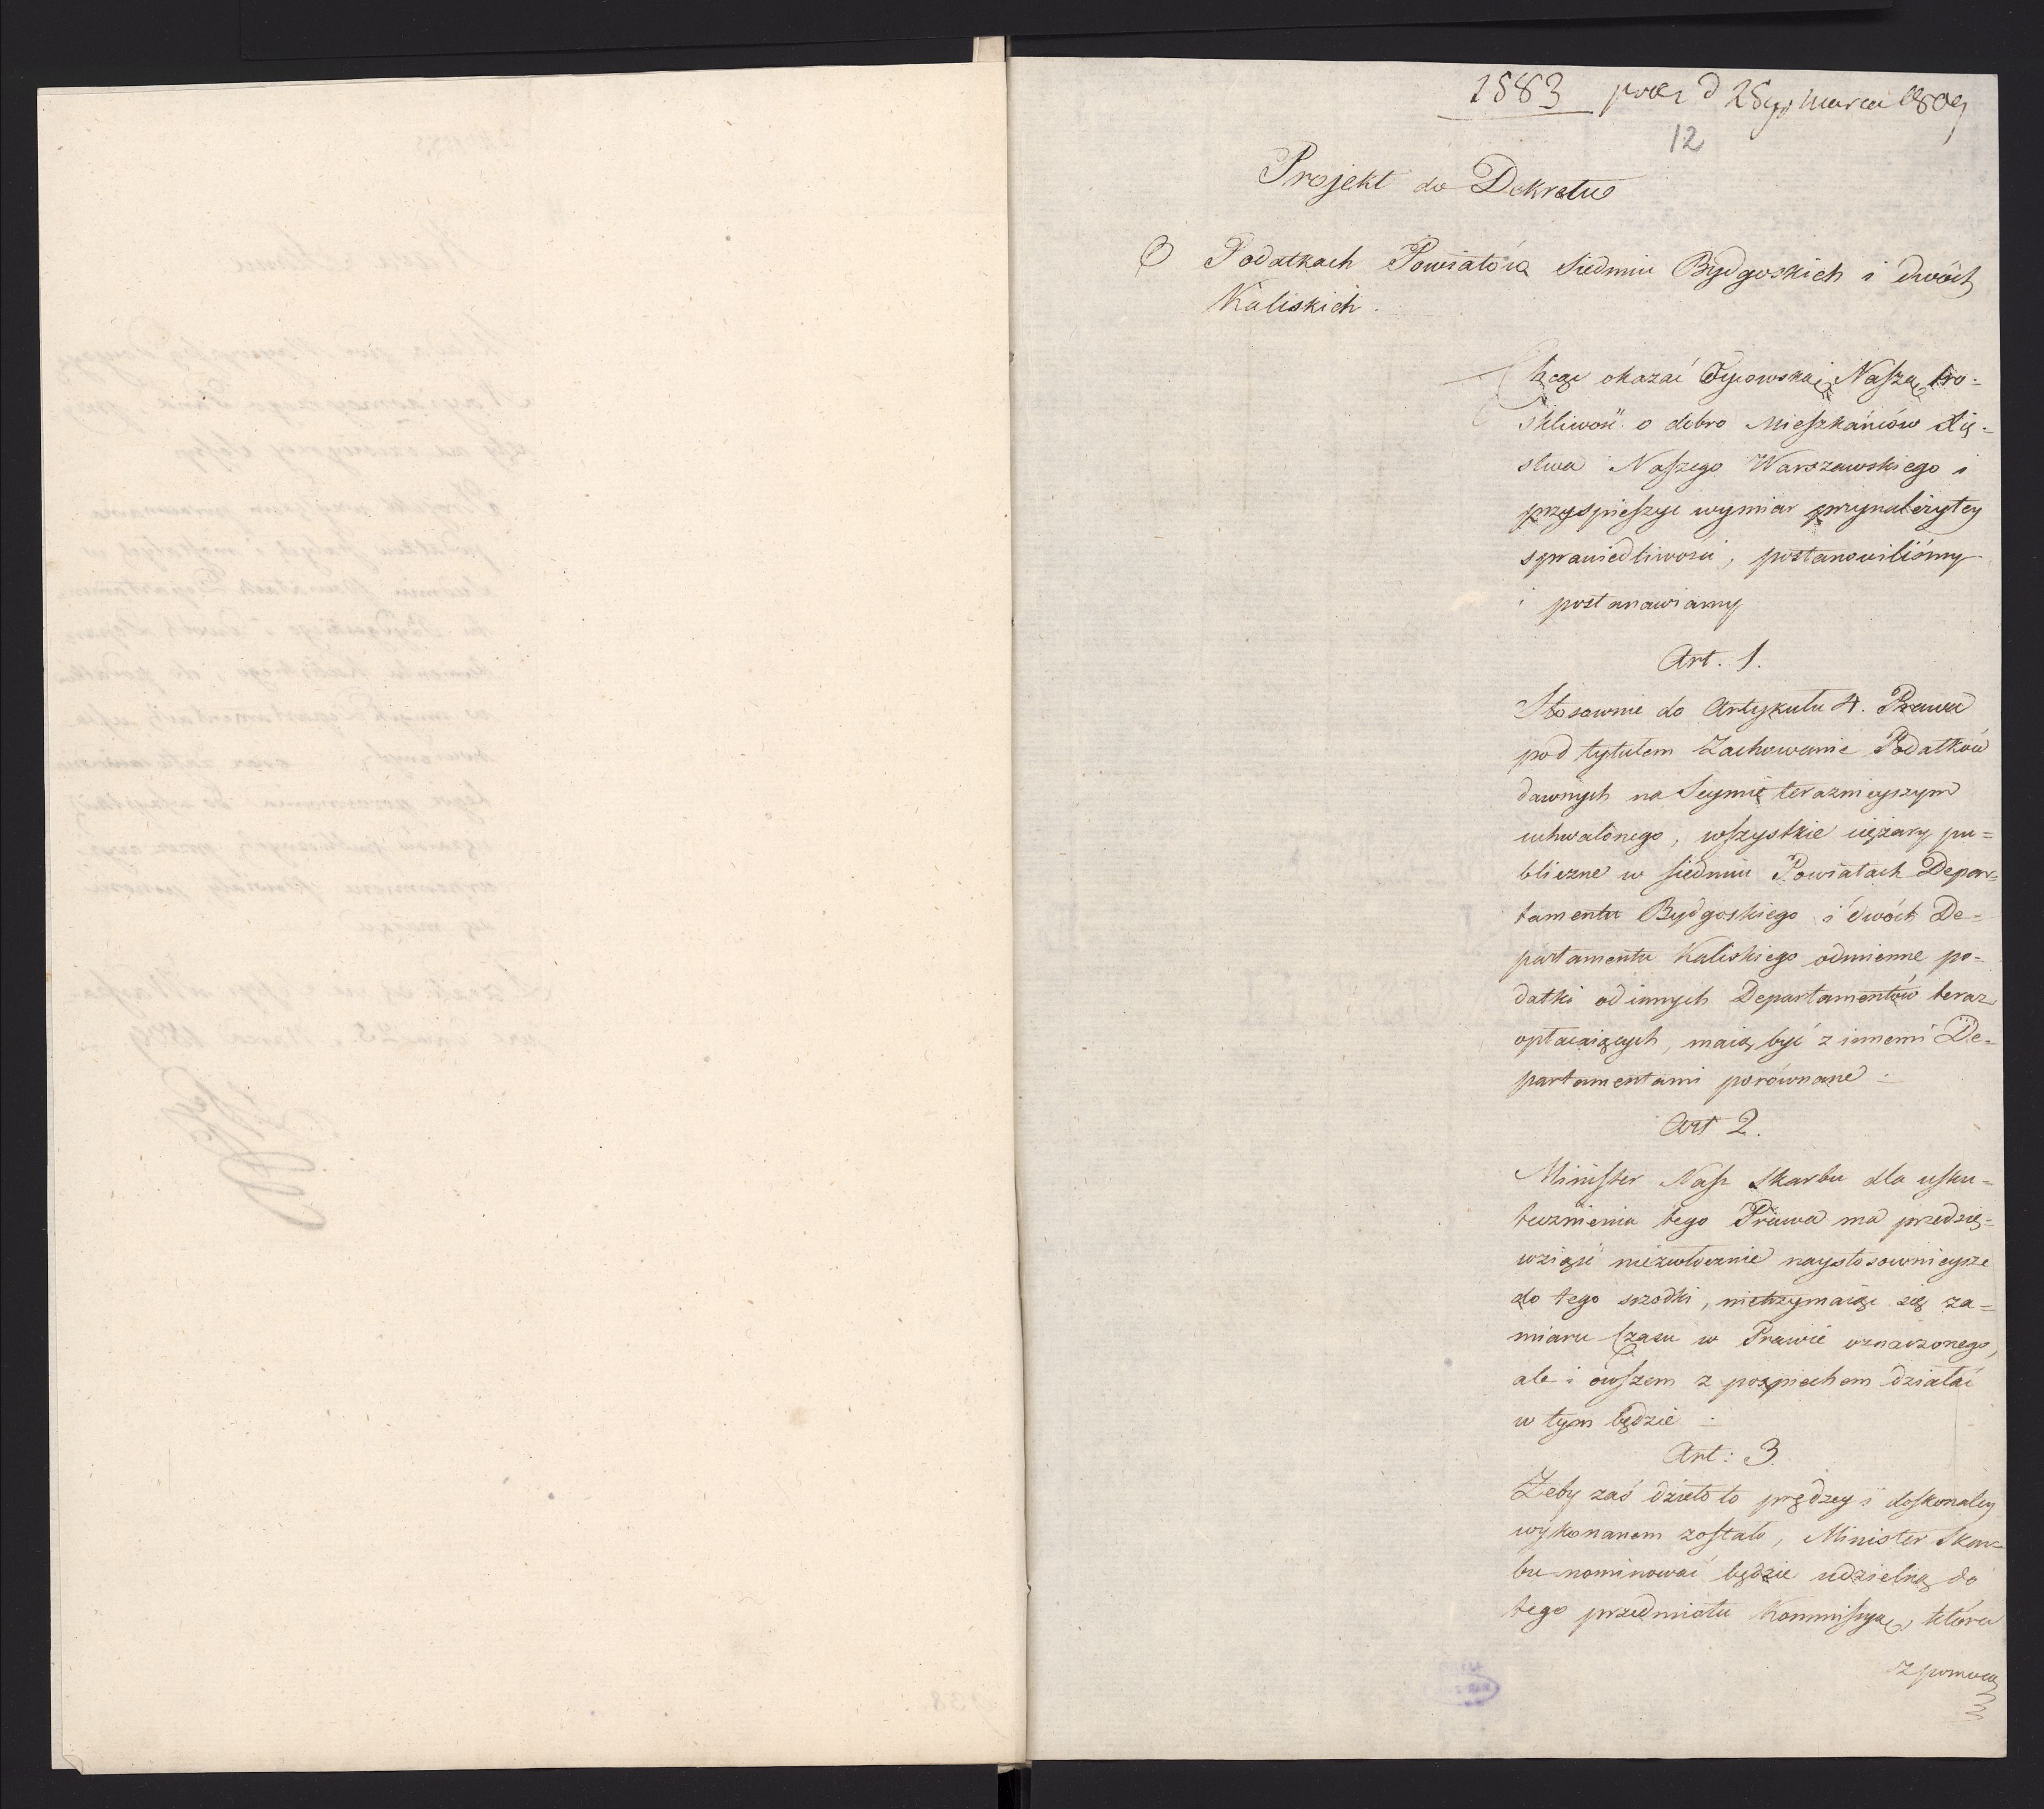 1583 prez d 25go Marca 1809
12
Projekt do Dekretu
O Podatkach Powiatów siedmiu Bydgoskich i dwóch
Kaliskich.
Chcąc okazać Oycowską Naszą tro=
skliwość o dobro Mieszkańców Xię=
stwa Naszego Warszawskiego i
przyspieszyć wymiar przynależytey
sprawiedliwości, postanowiliśmy
i postanawiamy
Art. 1.
Stosownie do Artykułu 4. Prawa
pod tytułem Zachowanie Podatków
dawnych na Seymie teraznieyszym
uchwalonego, wszystkie ciężary pu=
bliczne w siedmiu Powiatach Depar=
tamentu Bydgoskiego i dwóch De=
partamentu Kaliskiego odmienne po=
datki od innych Departamentów teraz
opłacaiących, maią być z innemi De=
partamentami porównane.
Art 2.
Minister Nasz Skarbu dla usku=
tecznienia tego Prawa ma przedsię=
wziąść niezwłocznie naystosownieysze
do tego srzodki, nietrzymaiąc się za=
miaru Czasu w Prawie oznaczonego,
ale i owszem z pospiechem działać
w tym będzie.
Art: 3.
Żeby zaś dzieło to prędzey i doskonaley
wykonanem zostało, Minister Skar=
bu nominować będzie udzielną do
tego przedmiotu Kommissyą, która
z pomocą